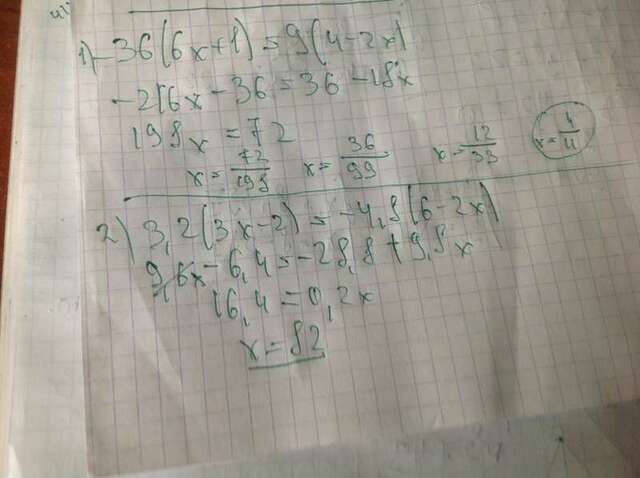 1) -36(6x+1)=9(4-2x)
-216x-36=36-18x
198x=72
x=72/198 x=36/99 x=12/33 x=4/11
2) 3,2(3x-2)=-4,8(6-2x)
9,6x-6,4=-28,8+9,8x
16,4=0,2x
x=82